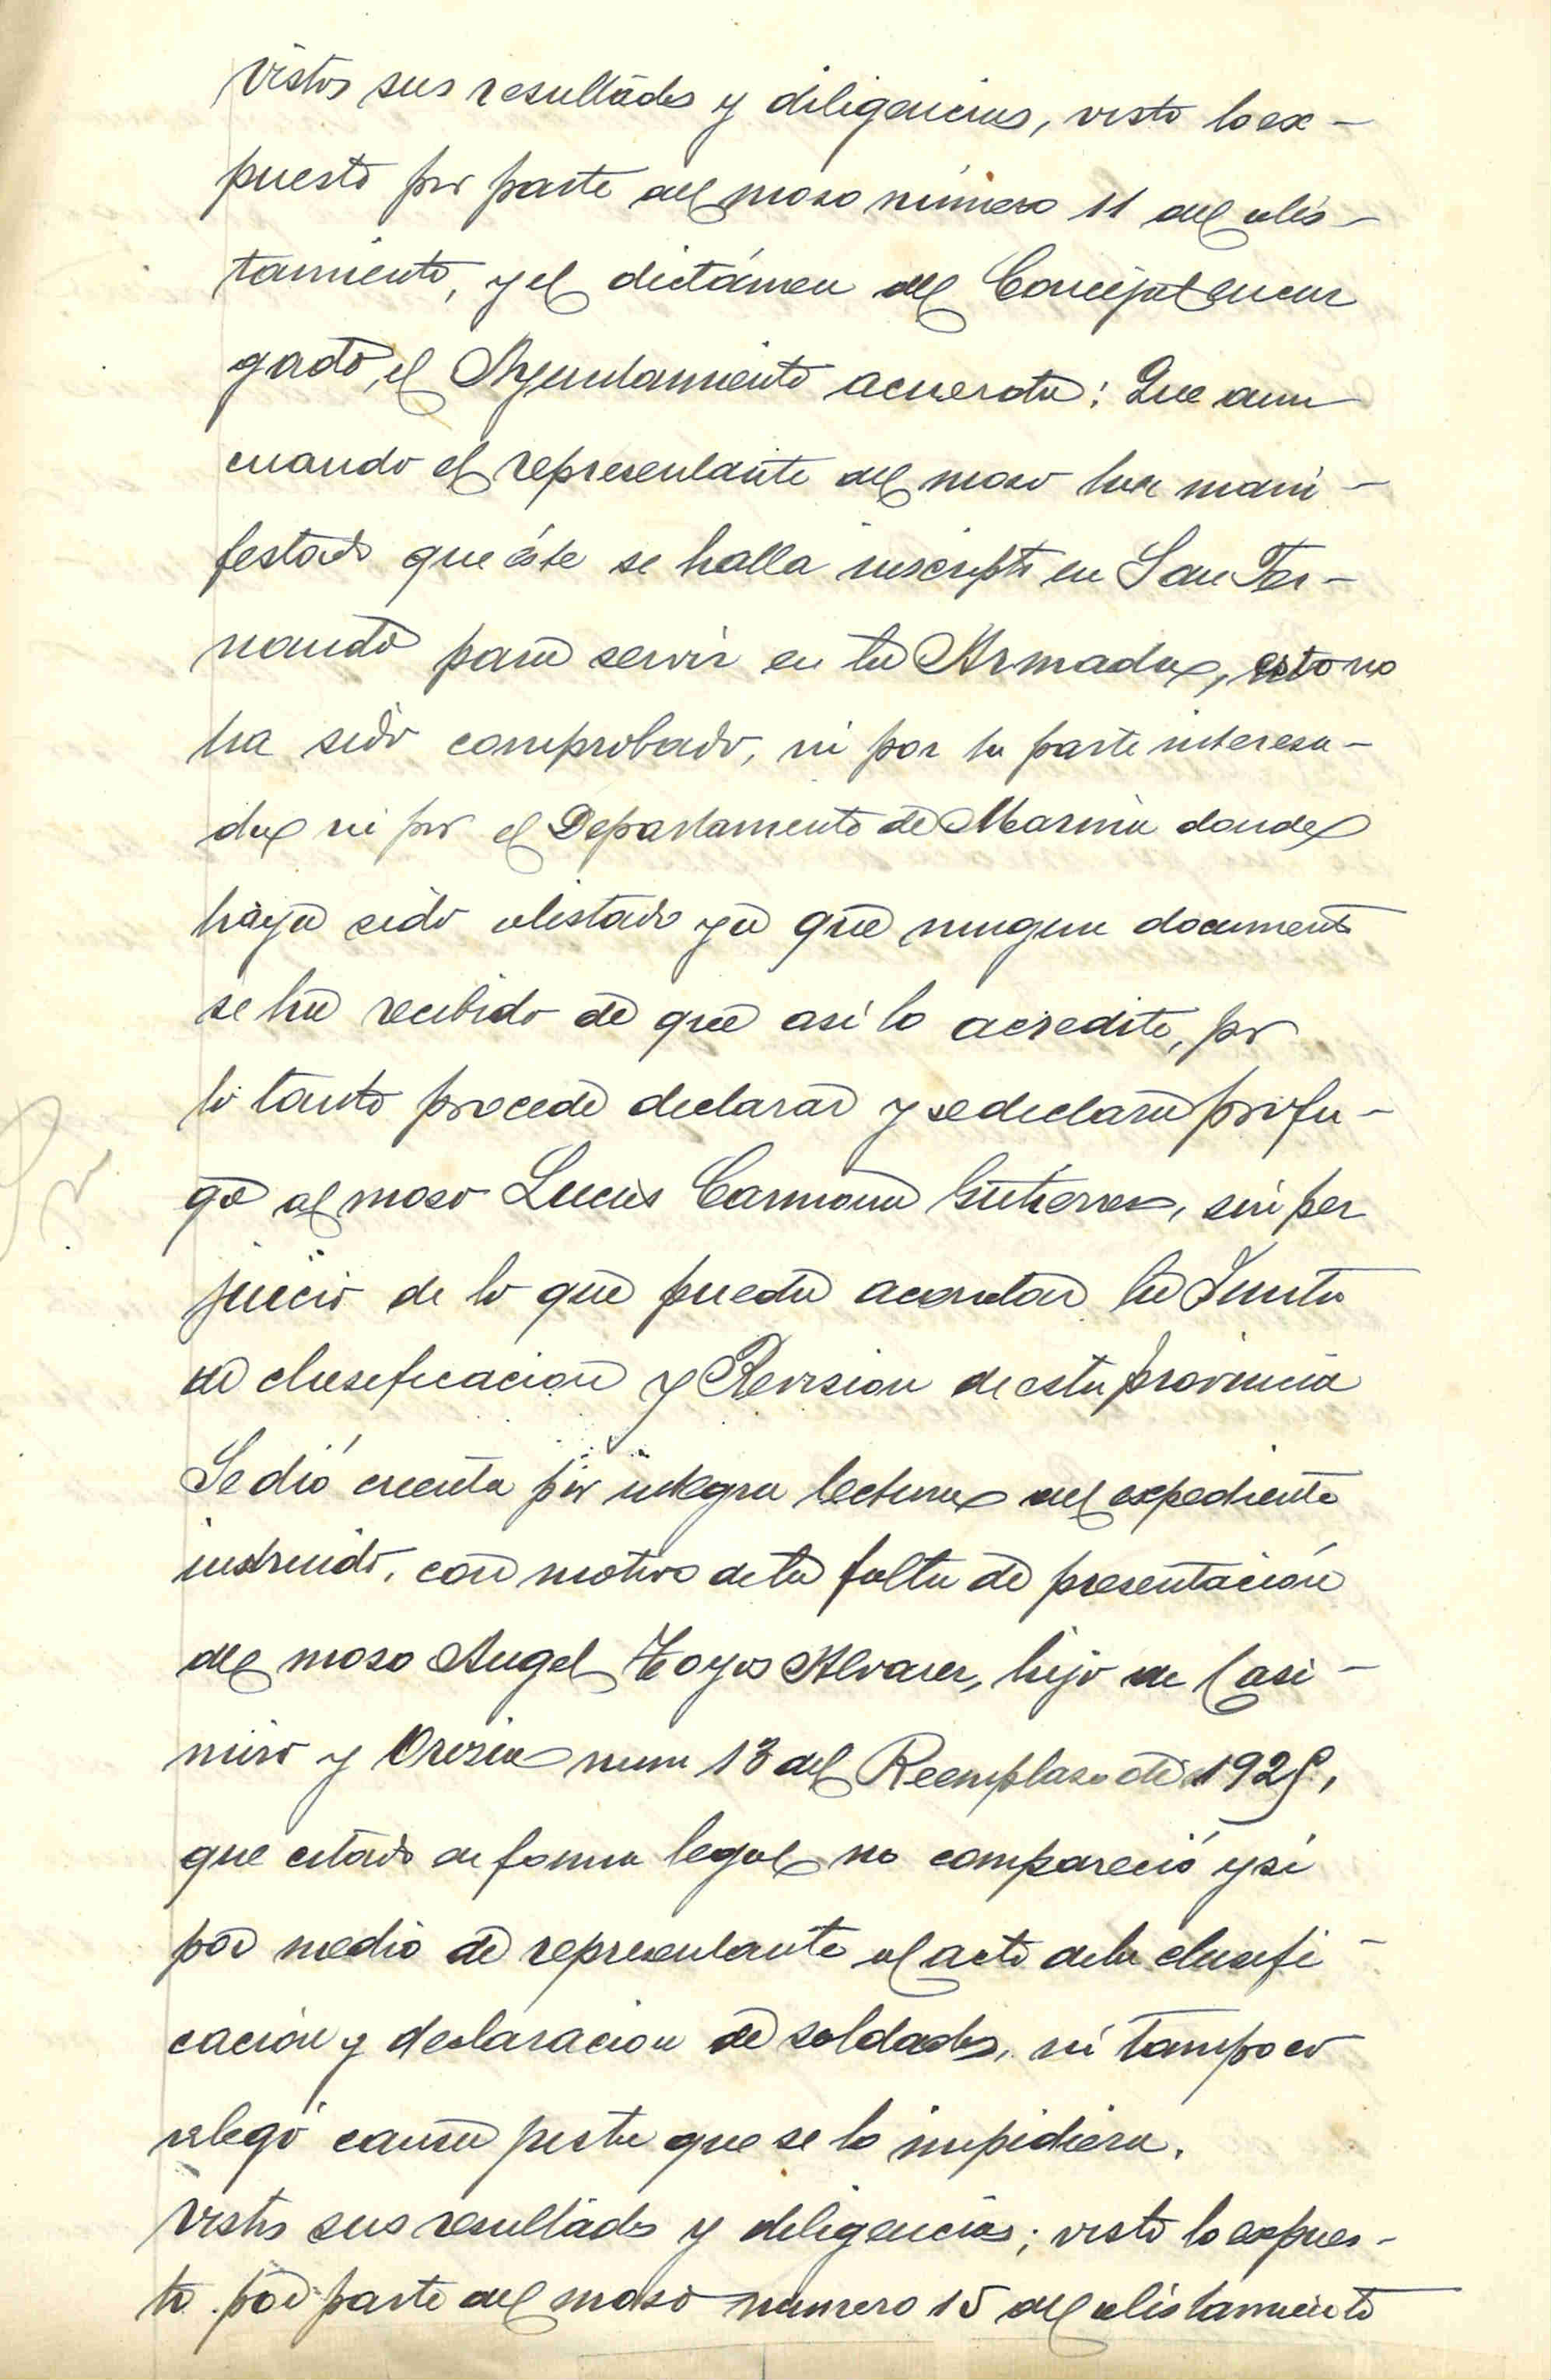 Vistos sus resultados y diligencias, visto lo ex-
puesto por parte del moso número 11 del alis-
tamiento, y el dictámen del Concejal encar
gado, el Ayuntamiento acuerda: Que aun
cuando el representante del moso ha mani-
festado que éste se halla inscripto en San Fer-
nando para servir en la Armada, esto no
ha sido comprobado, ni por la parte interesa-
da ni por el Departamento de Marina donde
haya sido alistado ya que ningun documento
se ha recibido de que asi lo acredite, por
lo tanto procede declarar y se declara prófu-
go al moso Lucas Carmona Gutierrez, sin per
juicio de lo que pueda acordar la Junta
de clasificacion y Revision de esta provincia
Se dió cuenta por integra lectura del expediente
instruido, con motivo de la falta de presentación
del moso Angel Hoyos Alvarez, hijo de Casi-
miro y num 13 del Reemplaso de 1925,
que citado en forma legal no compareció y si
por medio de representante al acto de la clasifi-
cación y declaracion de soldados, ni tampoco
alegó causa justa que se lo impidiera.
Vistos sus resultados y diligencias; visto lo expues-
to por parte del moso numero 15 del alistamiento